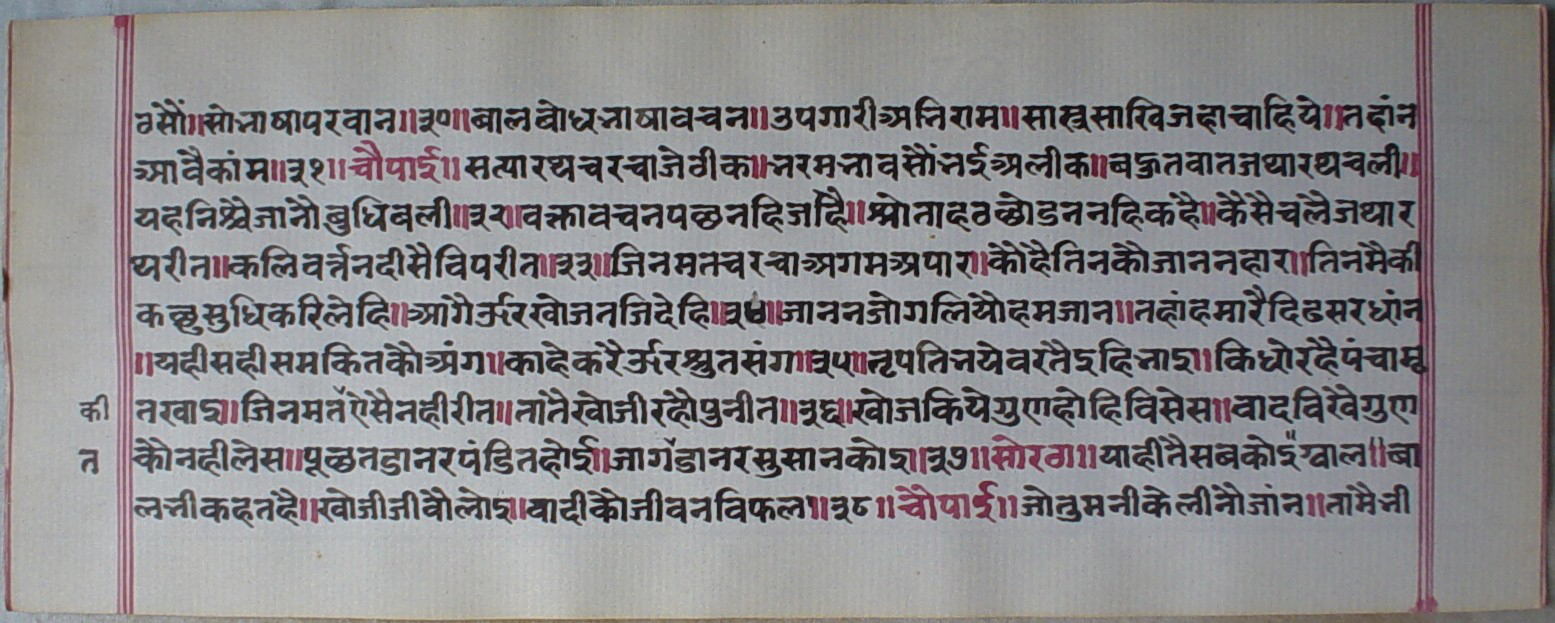 ठसौं॥सो भाषा परवान॥३०॥बालबोध भाषा वचन॥उपगारी अभिराम॥सास्त्र साखि ज हा चाहिये॥तहां न
आवै कांम॥३१॥चौपाई॥सत्यारथ चरचा जे ठीक॥भरम भाव सौं भई अलीक॥बहुत वात जथारथ चली॥
यह निश्चै जानौ बुधिबली॥३२॥वक्ता वचन पछ नहि जहै॥श्रोता हठ छोडन नहि कहै॥कैसै चलै जथार
थ रीत॥कलि वर्त्तन दीसै विपरीत॥३३॥जिनमत चरचा अगम अपार॥को है तिनकौ जाननहार॥तिनमै की
कछु सुधि करि लेहि॥आगै और खोज तजि देहि॥३४॥जानन जोग लियो हम जान॥तहां हमारै दिढ सरधांन
॥यही सही समकित कौ अंग॥काहे करै और श्रुत संग॥३५॥नृपति नये वरतै इहि भाइ॥किधो रहै पंचामृ
त खाइ॥जिनमत ऐसै नही रीत॥तांतै खोजी रहौ पुनीत॥३६॥खोज कियै गुण होहि विसेस॥वाद विखै गुण
की
कौ नही लेस॥पूछत डा नर पंडित होई॥जाग डा नर मुसा न कोइ॥३७॥सोरठा॥याही तै सब कोइ ग्वाल॥बा
त
ल भी कहत है॥खोजी जीवौ लोइ॥वादी कौ जीवन विफल॥३८॥चौपाई॥जो तुम नीके लीनौ जांन॥तामै भी